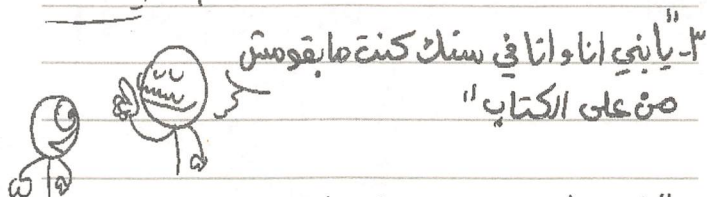 ٣- "يا بني انا وانا في سنك كنت ما بقومش
من على الكتاب"